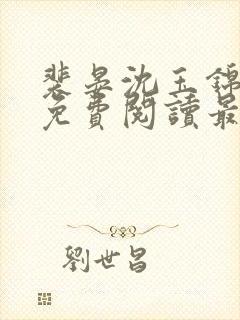 裴晏沈玉錦
免費閱讀最
劉世昌